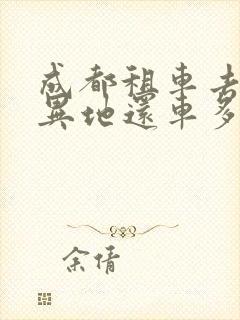 成都租車去
異地還車多
余倩